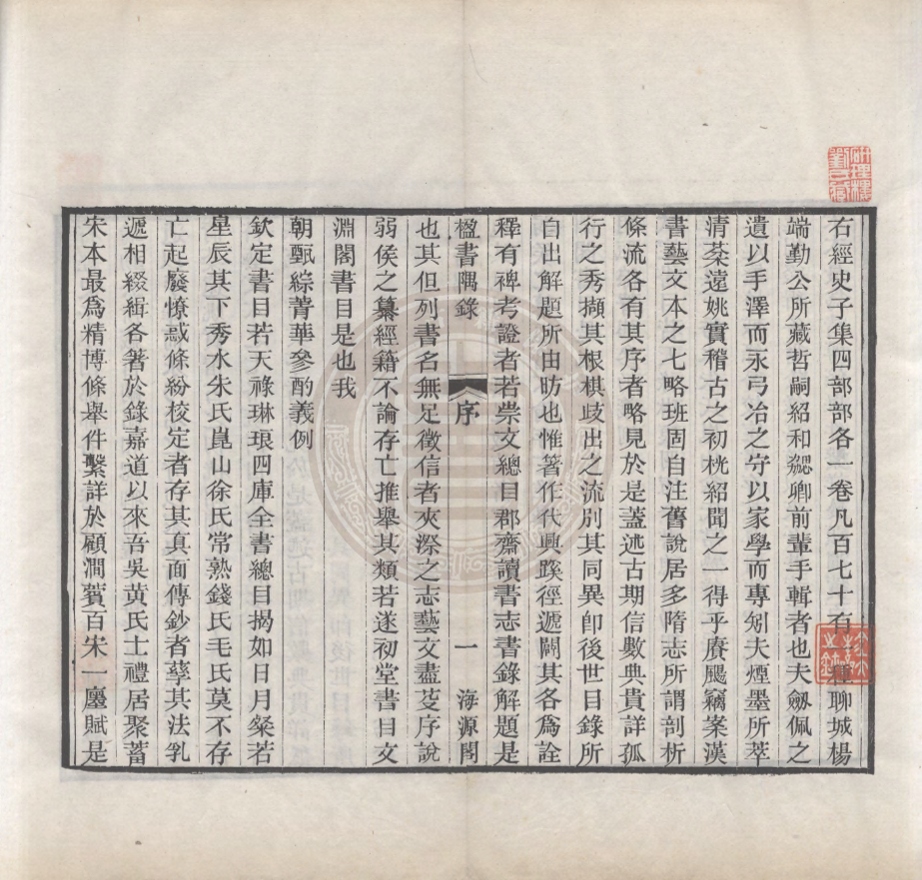 右經史子集四部部各一卷凡百七十有一種聊城楊
端勤公所藏哲嗣紹和勰卿前輩手輯者也夫劒佩之
遺以手澤而永弓冶之守以家學而專矧夫煙墨所萃
清棻遠姚實稽古之初桄紹聞之一得乎賡颺竊案漢
書藝文本之七略班固自注舊說居多隋志所謂剖析
條流各有其序者略見於是蓋述古期信數典貴詳孤
行之秀擷其根棋歧出之流別其同異卽後世目錄所
自出解題所由昉也惟箸作代興蹊徑遞闢其各爲詮
釋有裨考證者若崇文總目郡齋讀書志書錄解題是
楹書隅錄 序 一 海源閣
也其但列書名無足徵信者夾漈之志藝文盡芟序說
弱侯之纂經籍不論存亡推舉其類若遂初堂書目文
淵閣書目是也我
朝甄綜菁華參酌義例
欽定書目若天祿琳琅四庫全書總目揭如日月粲若
星辰其下秀水朱氏崑山徐氏常熟錢氏毛氏莫不存
亡起廢憭惑條紛校定者存其真面傳鈔者孳其法乳
遞相綴緝各著於錄嘉道以來吾吳黃氏士禮居聚蓄
宋本最爲精博條舉件繫詳於顧澗薲百宋一廛賦是